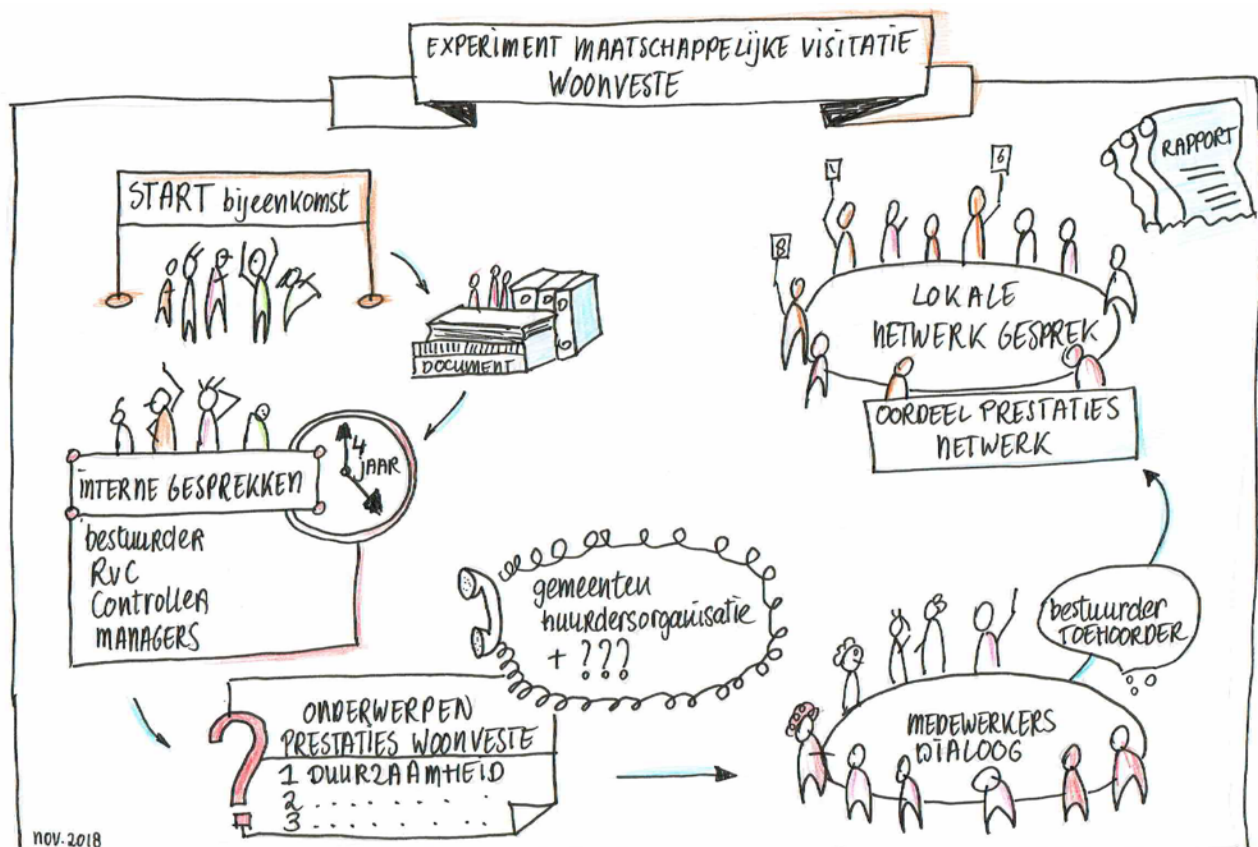 EXPERIMENT MAATSCHAPPELIJKE VISITATIE
WOONVESTE
START bijeenkomst
DOCUMENT
4
JAAR
INTERNE GESPREKKEN
bestuurder
RvC
Controller
MANAGERS
gemeenten
huurdersorganisatie
+ ???
ONDERWERPEN
PRESTATIES WOONVESTE
1 DUURZAAMHEID
2 . . . . . . . .
3 . . . . . . . .
?
MEDEWERKERS
DIALOOG
bestuurder
TOEHOORDER
8
1
6
LOKALE
NETWERK GESPREK
OORDEEL PRESTATIES
NETWERK
RAPPORT
nov. 2018